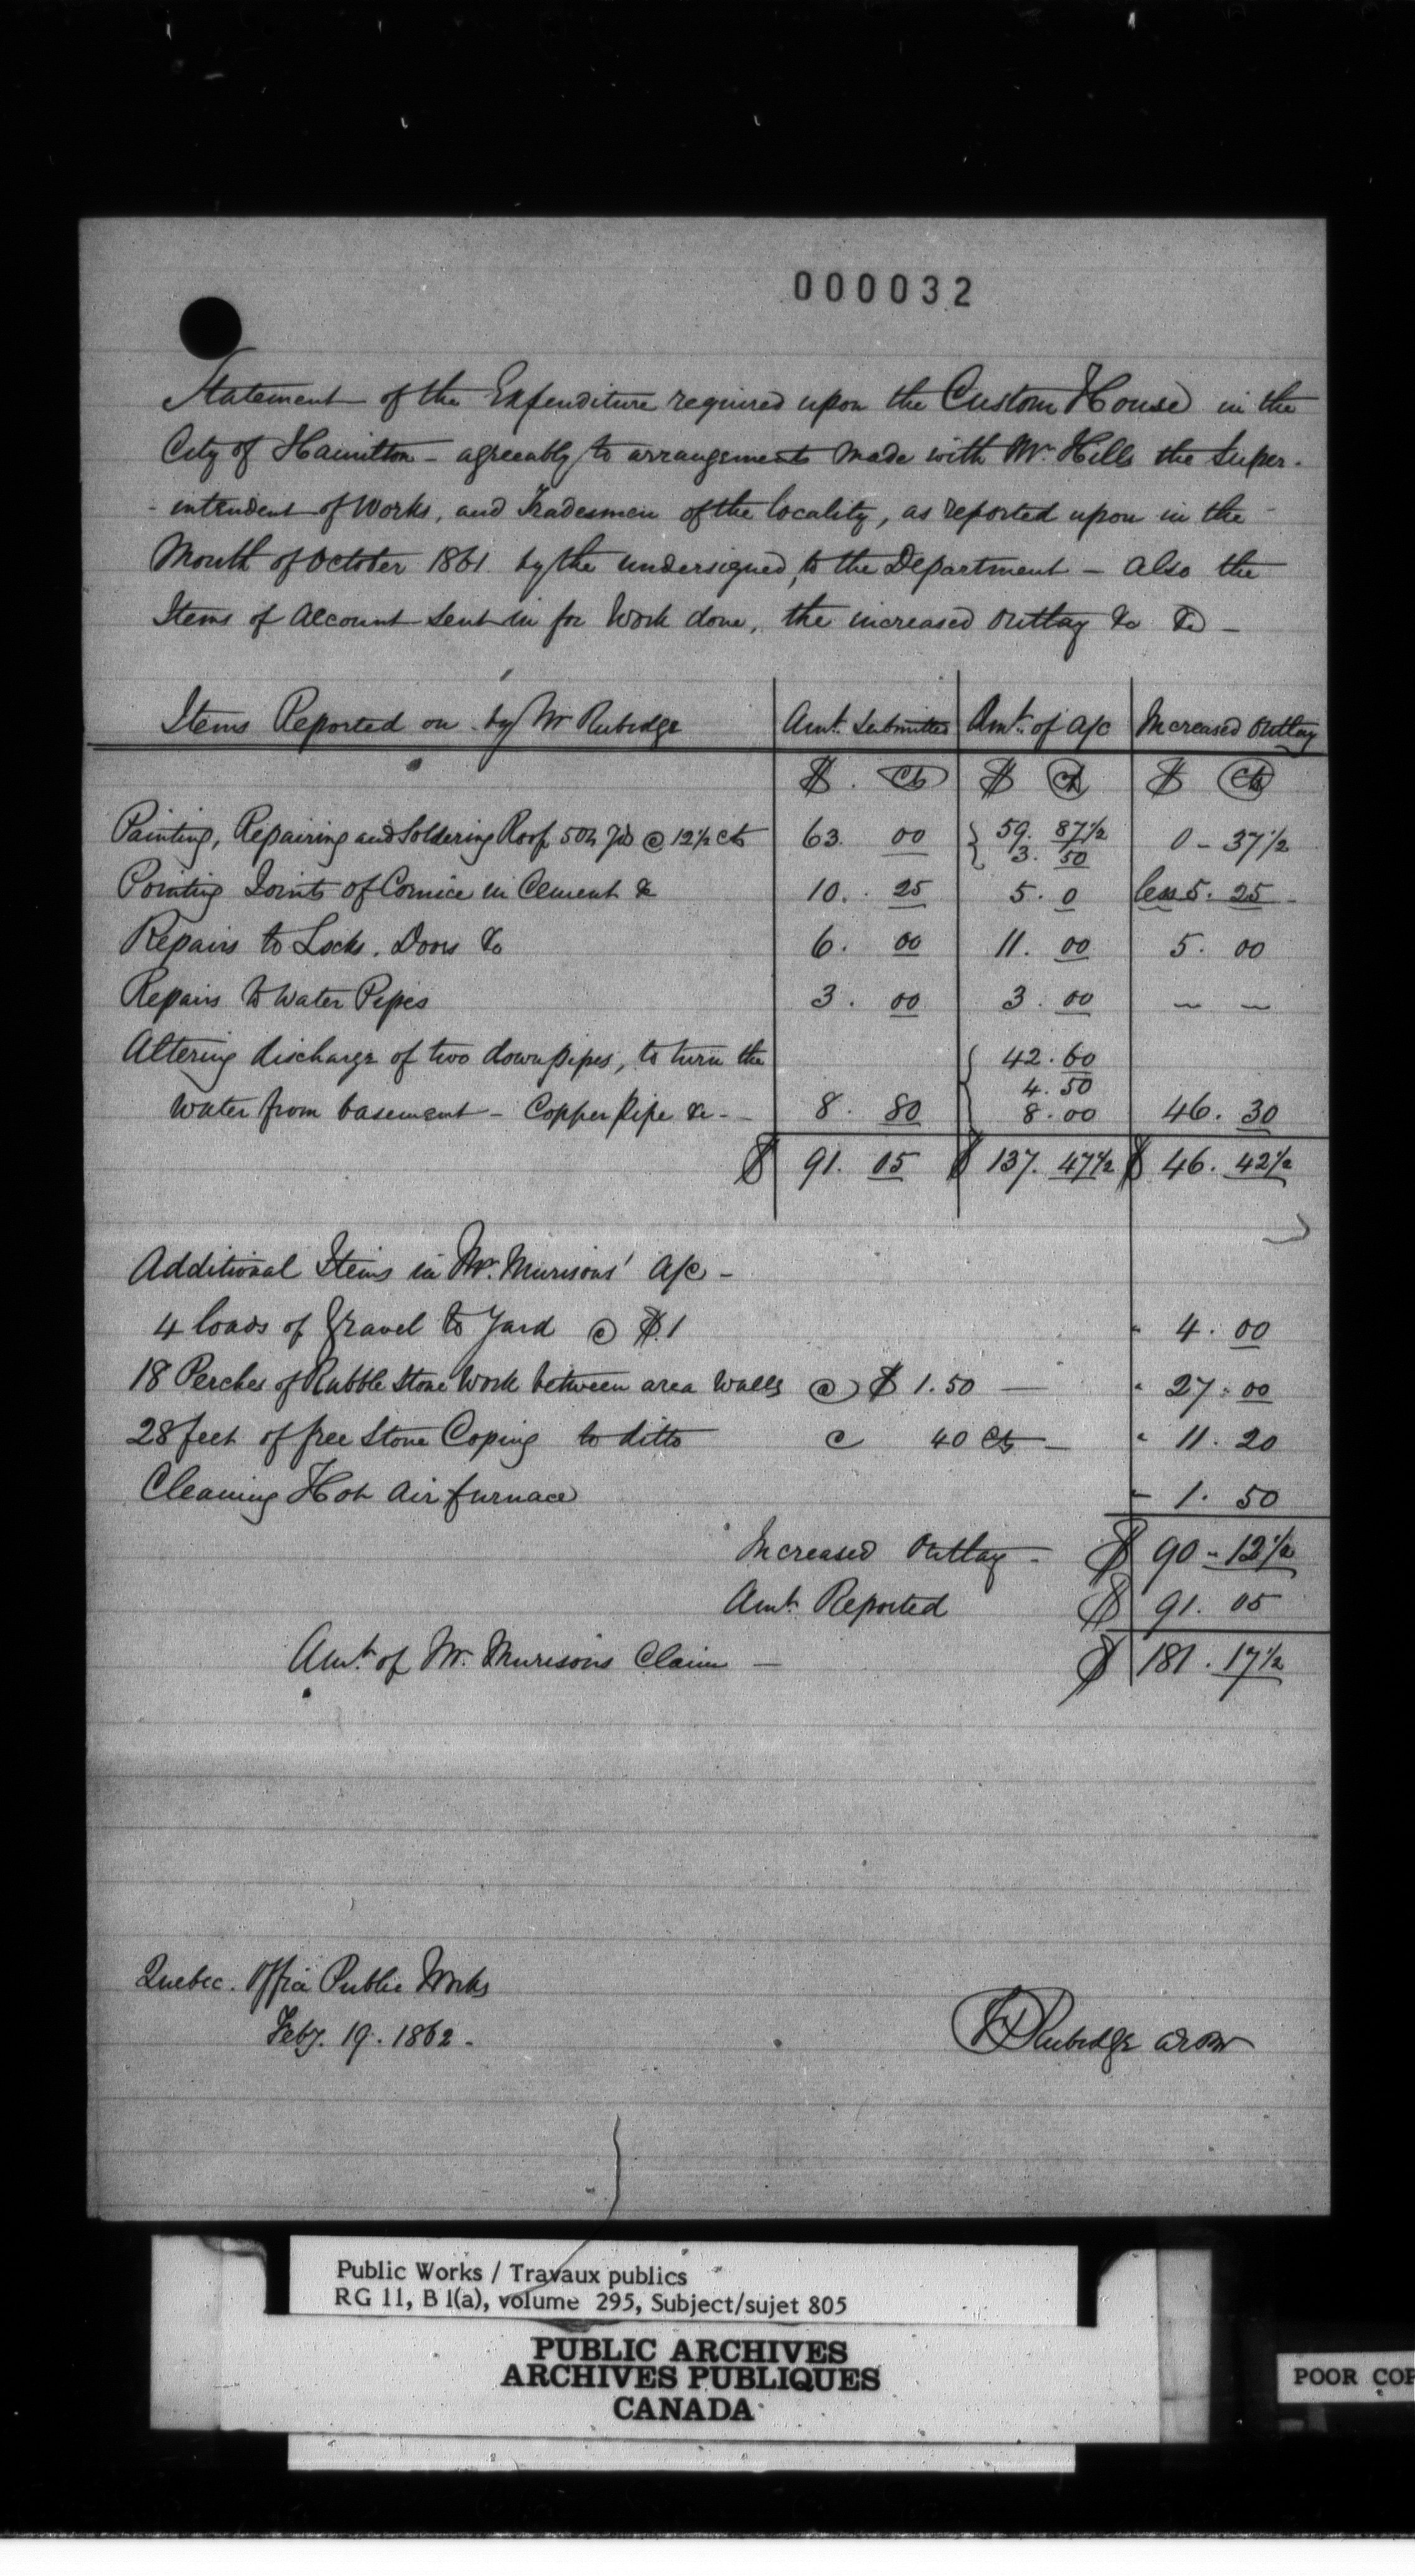 000032
Statement of the Expenditure required upon the Custom House in the
City of Hamilton - agreeably to arrangements made with Mr. Hills the Super-
- intendent of Works, and Tradesmen of the locality, as reported upon in the
Month of October 1861 by the undersigned, to the Department - also the
Items of Account sent in for Work done, the increased outlay &c &c -
Items Reported on by Mr Rubidge Amt. Submitted Amt. of A/c Increased Outlay
$. Cts $ Cts $ Cts
Painting, Repairing and Soldering Roof 504 Yds @ 12½ cts 63. 00 { 59. 87½ 0 - 37½
3. 50
Pointing Joints of Cornice in Cement &c 10. 25 5. 0 less 5. 25
Repairs to Locks. Doors &c 6. 00 11. 00 5. 00
Repairs to Water Pipes 3. 00 3. 00 - -
Altering discharge of two down pipes, to turn the { 42. 60
4. 50
Water from basement - Copper pipe &c - 8. 80 8. 00 46. 30
$ 91. 05 $ 137. 47½ $ 46. 42½
Additional Items in Mr. Murisons' A/c -
4 loads of Gravel to Yard @ $.1 " 4. 00
18 Perches of Rubble Stone Work between area Walls @ $ 1.50 - " 27. 00
28 feet of free Stone Coping to ditto @ 40 Cts - " 11. 20
Cleaning Hot Air furnace " 1. 50
Increased Outlay - $ 90 - 12½
Amt. Reported $ 91. 05
Amt. of Mr. Murisons Claim - $ 181. 17½
Quebec. Office Public Works
Feby. 19. 1862.
Rubidge
Public Works / Travaux publics
RG 11, B 1(a), volume 295, Subject/sujet 805
PUBLIC ARCHIVES
ARCHIVES PUBLIQUES
CANADA
POOR COP